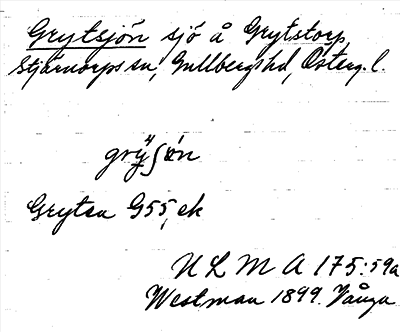 Grytsjön sjö å Grytstorp,
Stjärnorps sn, Gullbergs hd, Österg. l.
Gryten G55, ek
ULMA 175:59a
Westman 1899. Vånga